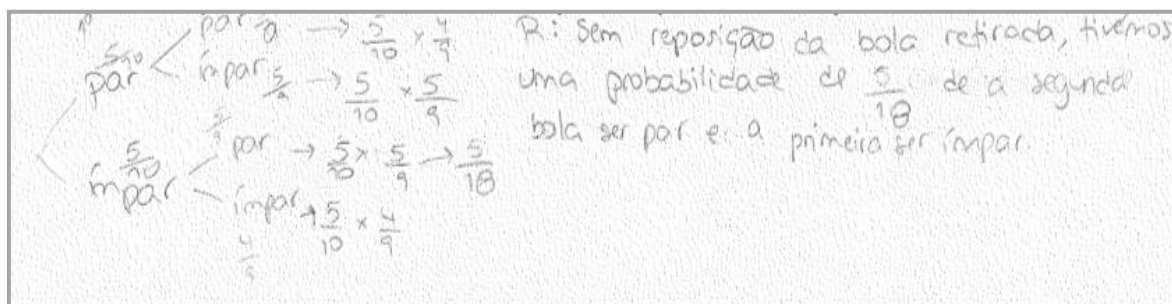 par → 5/10 × 4/9
par 5/10
ímpar 5/9 → 5/10 × 5/9
5/9
par → 5/10 × 5/9 → 5/18
ímpar 5/10
ímpar → 5/10 × 4/9
4/9
R: Sem reposição da bola retirada, tivemos
uma probabilidade de 5/18 de a segunda
bola ser par e a primeira ser ímpar.